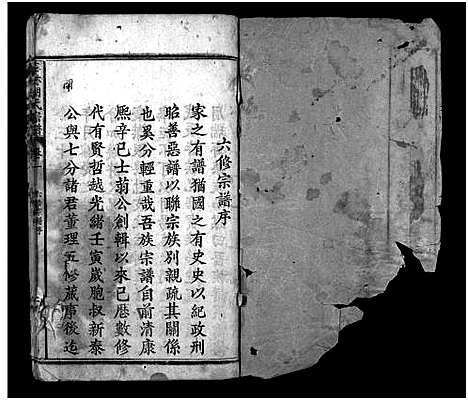 六修宗譜序
家之有譜猶國之有史史以紀政刑
昭善惡譜以聯宗族別親疏其關係
也奚分輕重哉吾族宗譜自前清康
熙辛巳士蓊公創輯以來已歷數修
代有賢哲越光緒壬寅歲胞叔新泰
公與七分諸君董理五修蕆事後迄